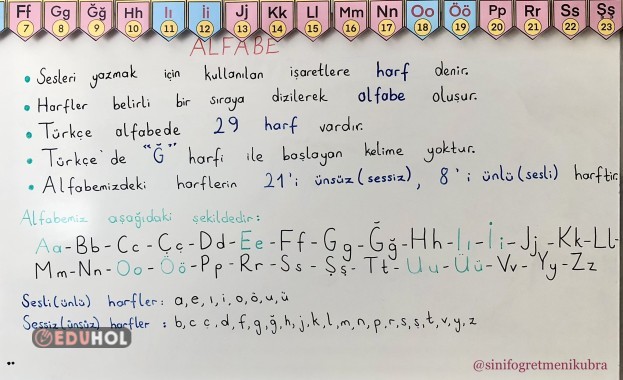 Ff Gg Ğğ Hh Iı İi Jj Kk Ll Mm Nn Oo Öö Pp Rr Ss Şş
7 8 9 10 11 12 13 14 15 16 17 18 19 20 21 22 23
ALFABE
• Sesleri yazmak için kullanılan işaretlere harf denir.
• Harfler belirli bir sıraya dizilerek alfabe oluşur.
• Türkçe alfabede 29 harf vardır.
• Türkçe'de "Ğ" harfi ile başlayan kelime yoktur.
• Alfabemizdeki harflerin 21'i ünsüz (sessiz), 8'i ünlü (sesli) harftir.
Alfabemiz aşağıdaki şekildedir:
Aa - Bb - Cc - Çç - Dd - Ee - Ff - Gg - Ğğ - Hh - Iı - İi - Jj - Kk - Ll -
Mm - Nn - Oo - Öö - Pp - Rr - Ss - Şş - Tt - Uu - Üü - Vv - Yy - Zz
Sesli (ünlü) harfler: a, e, ı, i, o, ö, u, ü
Sessiz (ünsüz) harfler : b, c, ç, d, f, g, ğ, h, j, k, l, m, n, p, r, s, ş, t, v, y, z
EDUHOL
@sinifogretmenikubra